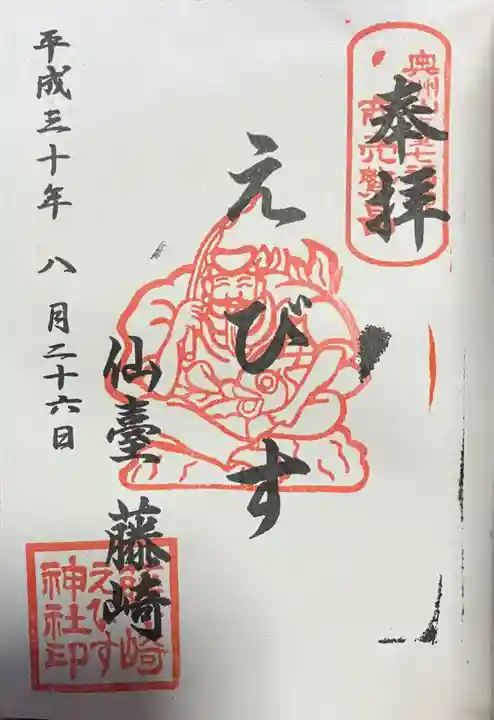 奉拝
奥州
えびす
仙臺 藤崎
平成三十年 八月二十六日
藤崎
えびす
神社印